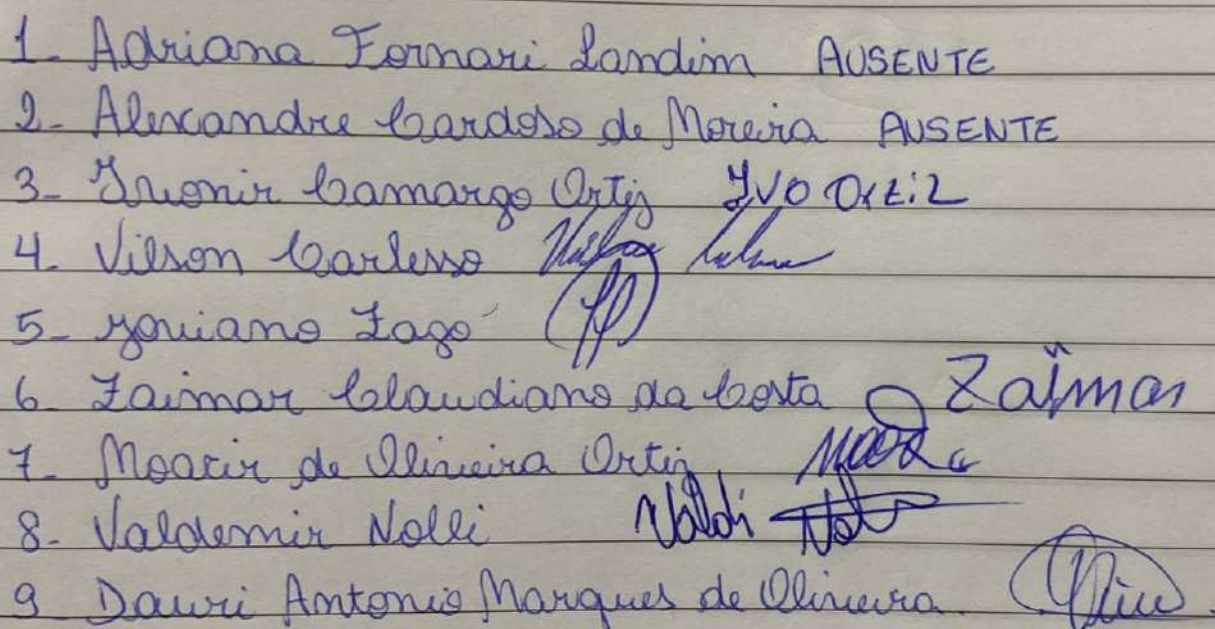 1- Adriana Fornari Landim AUSENTE
2- Alexandre Cardoso de Moreira AUSENTE
3- Ivonir Camargo Ortiz IVO Ortiz
4- Vilson Carlesso
5- Joviano Zago
6- Zaimar Claudiano da Costa Zaimar
7- Moacir de Oliveira Ortiz
8- Valdemir Nolli
9 Dauri Antonio Marques de Oliveira.